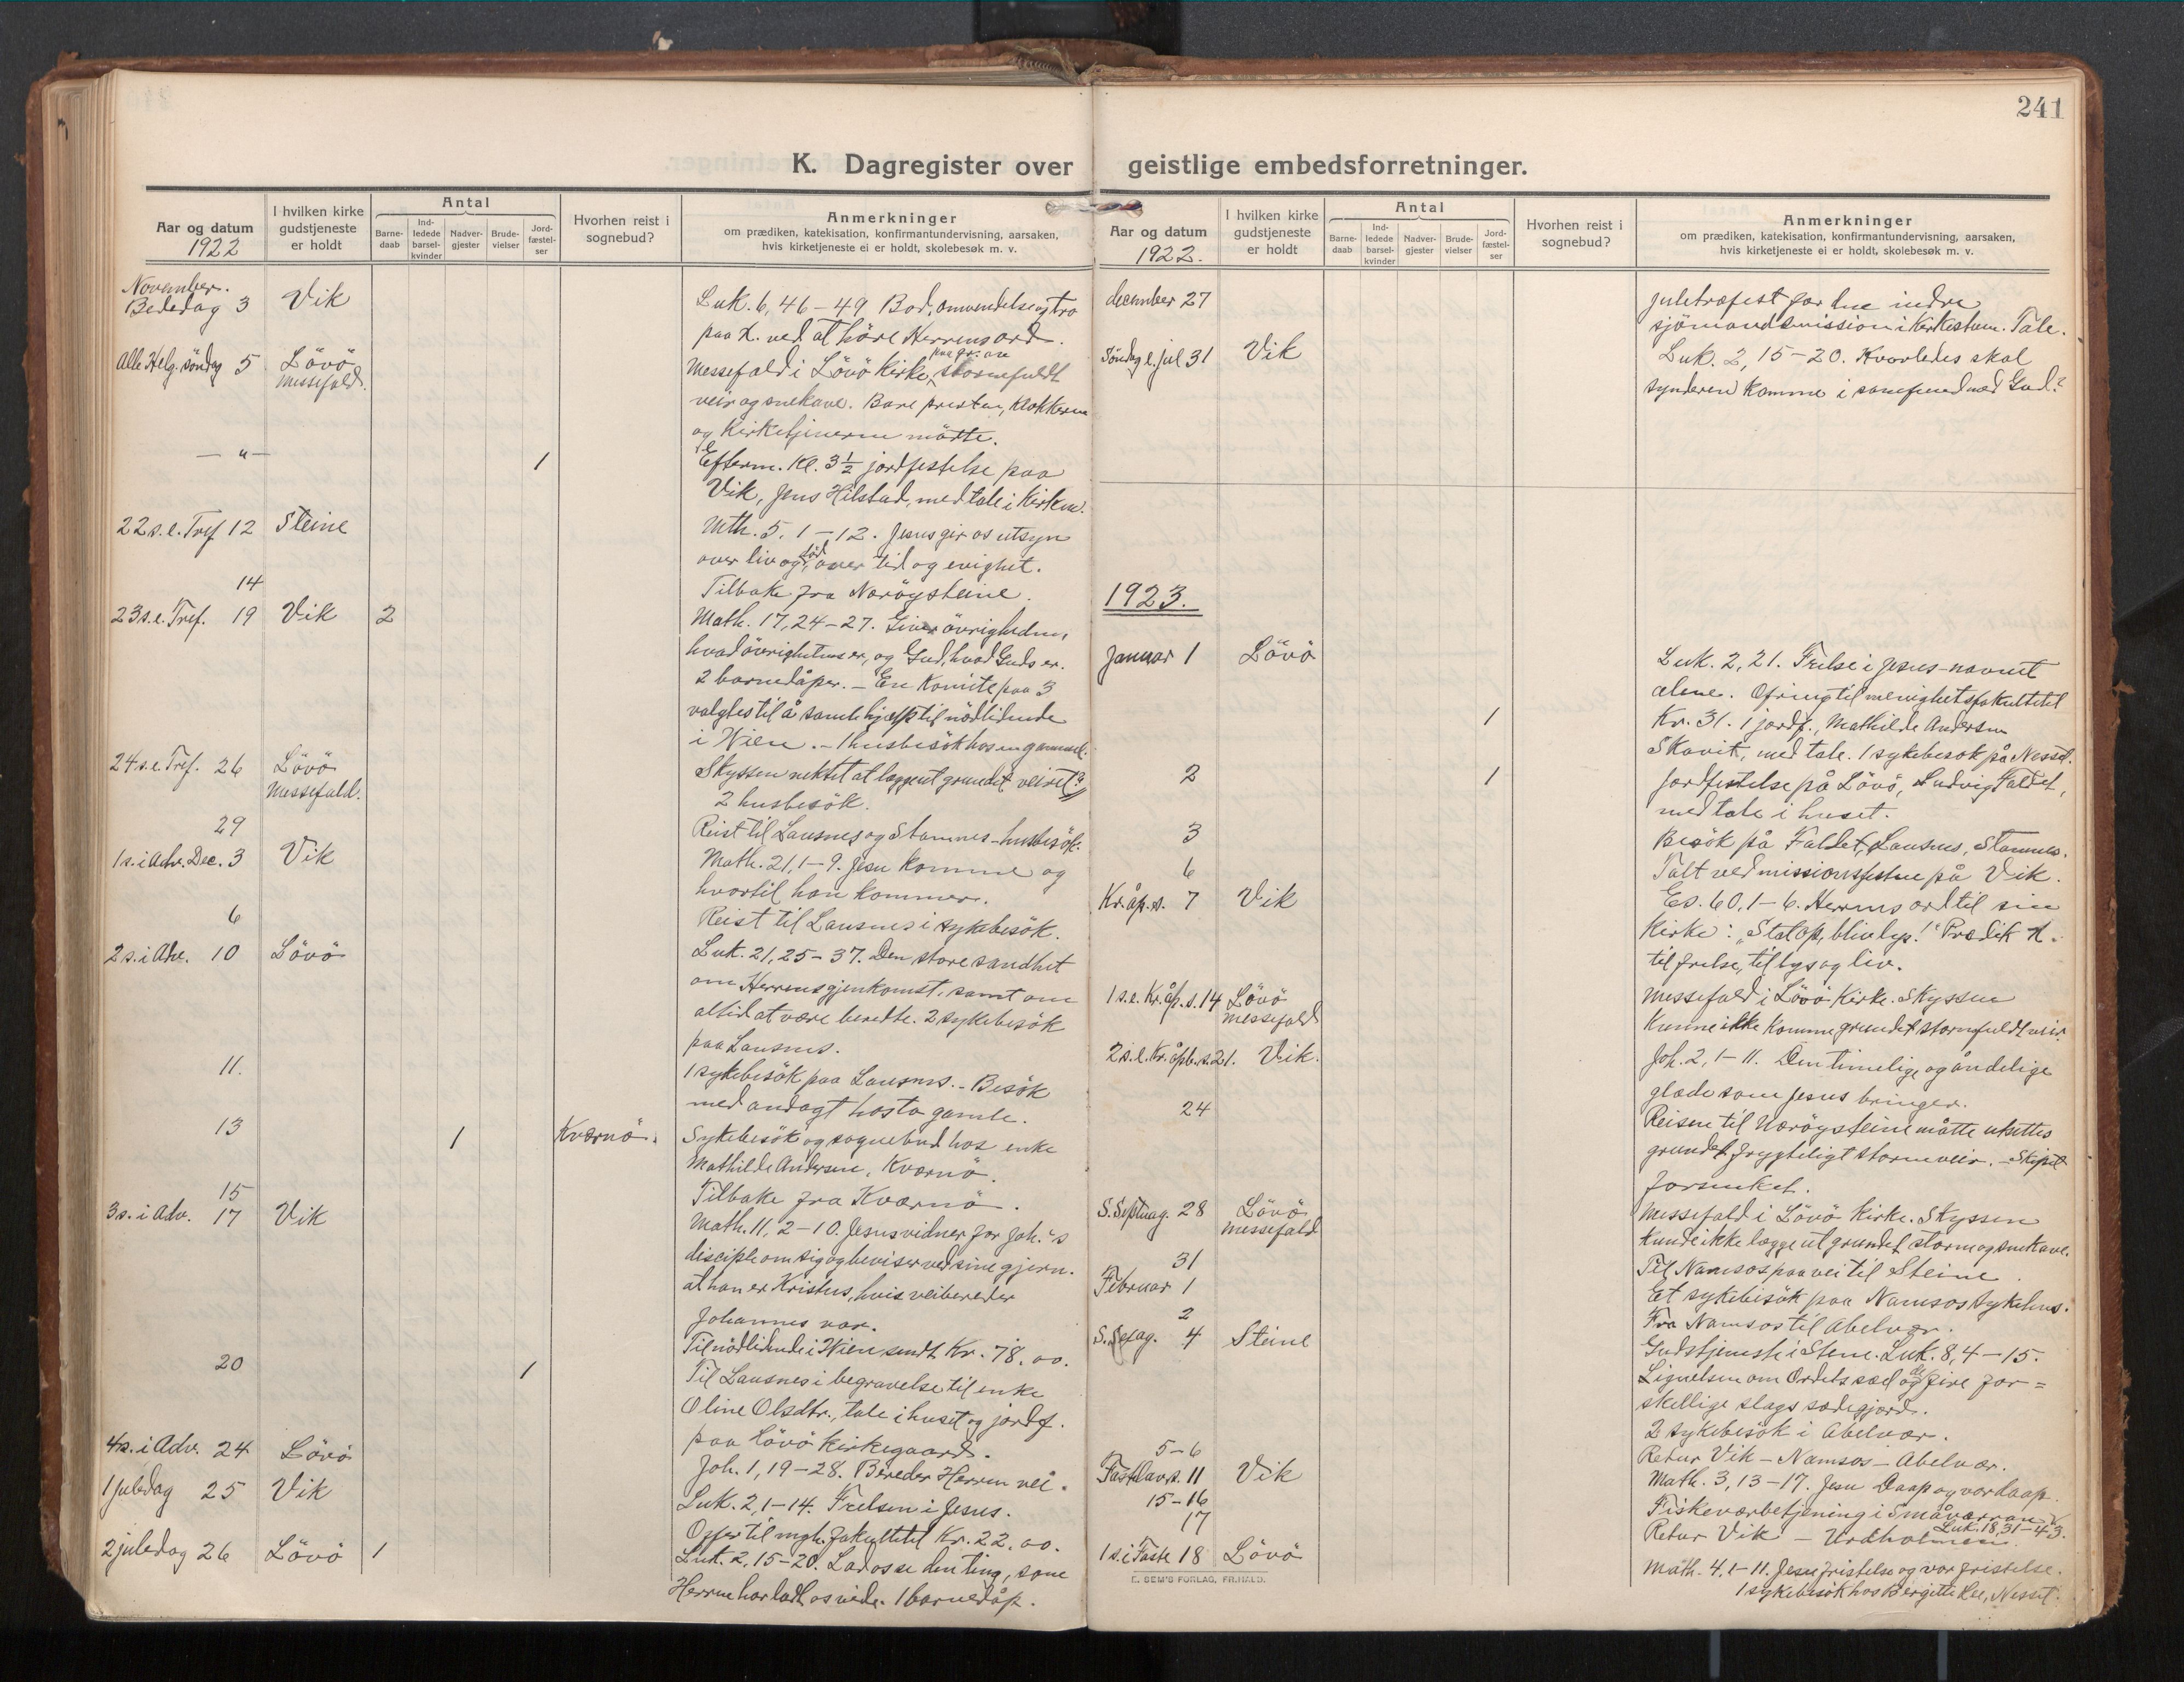 241
K. Dagregister over geistlige embedsforretninger.
Aar og datum
1922
I hvilken kirke gudstjeneste er holdt
Antal
Barne-daab
Ind-ledede barsel-kvinder
Nadver-gjester
Brude-vielser
Jord-fæstel-ser
Hvorhen reist i sognebud?
Anmerkninger
om prædiken, katekisation, konfirmantundervisning, aarsaken,
hvis kirketjeneste ei er holdt, skolebesøk m. v.
November.
Bededag 3 Vik Luk. 6, 46-49 Bod, omvendelse og tro
paa X. ved at höre Herrens ord.
Alle Helg. söndag 5 Lövö Messefald. Messefald i Lövö Kirke, paa gr. av stormfuldt
veir og snekave. Bare presten, klokkeren
og kirketjeneren mötte.
— " — 1 Efterm. Kl. 3½ jordfestelse paa
Vik, Jens Hilstad, med tale i kirken.
22 s. e. Tref 12 Steine Mth. 5, 1-12. Jesus gir os utsyn
over liv og död, over tid og evighet.
14 Tilbake fra Næröysteine.
23 s. e. Tref. 19 Vik 2 Math. 17, 24-27. Giver övrigheden,
hvad övrighetens er, og Gud, hvad Guds er.
2 barnedåper. — En Komite paa 3
valgtes til å samle hjælp til nödlidende
i Wien. - 1 husbesök hos en gammel.
24 s. e. Tref. 26 Lövö Messefald. Skyssen nektet at lægge ut grundet veiret?
2 husbesök.
29 Reist til Lausnes og Stamnes - husbesök.
1 s. i Adv. Dec. 3 Vik Math. 21, 1-9. Jesu komme og
hvortil han kommer.
6 Reist til Lausnes i sykebesök.
2 s. i Adv. 10 Lövö Luk. 21, 25-37. Den store sandhet
om Herrens gjenkomst, samt om
altid at være beredte. 2 sykebesök
paa Lausnes.
11. 1 sykebesök paa Lausnes. - Besök
med andagt hos to gamle.
13 1 Kværnö. Sykebesök og sognebud hos enke
Mathilde Andersen, Kværnö.
15 Tilbake fra Kværnö.
3 s. i Adv. 17 Vik Math. 11, 2-10. Jesus vidner for Joh.'s
disciple om sig og beviser ved sine gjern.
at han er Kristus, hvis veibereder
Johannes var.
Til nödlidende i Wien sendt Kr. 78.00.
20 1 Til Lausnes i begravelse til enke
Oline Olsdtr., tale i huset og jordf.
paa Lövö kirkegaard.
4 s. i Adv. 24 Lövö Joh. 1, 19-28. Bereder Herren vei.
1 juledag 25 Vik Luk. 2, 1-14. Frelsen i Jesus.
Offer til mgh. fakultetet Kr. 22.00.
2 juledag 26 Lövö 1 Luk. 2, 15-20. La os se den ting, som
Herren har latt os vide. 1 barnedåp.
Aar og datum
1922.
I hvilken kirke gudstjeneste er holdt
Antal
Barne-daab
Ind-ledede barsel-kvinder
Nadver-gjester
Brude-vielser
Jord-fæstel-ser
Hvorhen reist i sognebud?
Anmerkninger
om prædiken, katekisation, konfirmantundervisning, aarsaken,
hvis kirketjeneste ei er holdt, skolebesøk m. v.
december 27 Juletræfest for den indre
sjömandsmission i Kirkestuen. Tale.
Söndag e. jul 31 Vik Luk. 2, 15-20. Hvorledes skal
synderen komme i samfund med Gud?
1923.
Januar 1 Lövö Luk. 2, 21. Frelse i Jesus-navnet
alene. Ofring til menighetsfakultetet
1 Kr. 31. 1 jordf., Mathilde Andersen
Skavik, med tale. 1 sykebesök på Nesset.
2 1 Jordfestelse på Lövö, Ludvig Faldet,
med tale i huset.
3 Besök på Faldet, Lausnes, Stamnes.
6 Talt ved missionsfesten på Vik.
Kr. åp. s. 7 Vik Es. 60, 1-6. Herrens ord til sin
Kirke: "Stat op, bliv lys!" Prædik X.
til frelse, til lys og liv.
1 s. e. Kr. åp. s. 14 Lövö Messefald Messefald i Lövö Kirke. Skyssen
kunne ikke komme grundet stormfuldt veir.
2 s. e. Kr. åpb. s. 21. Vik. Joh. 2, 1-11. Den timelige og åndelige
glæde som Jesus bringer.
24 Reisen til Næröysteine måtte utsettes
grundet frygteligt stormveir. - Skipet
forsinket.
S. Septuag. 28 Lövö Messefald Messefald i Lövö Kirke. Skyssen
kunde ikke lægge ut grundet storm og snekave.
31 Til Namsos paa vei til Steine.
Februar 1 Et sykebesök paa Namsos sykehus.
2 Fra Namsos til Abelvær.
S. Sexag. 4 Steine Gudstjeneste i Stene. Luk. 8, 4-15.
Lignelsen om Ordets sæd og de fire for=
skellige slags sædejord.
2 sykebesök i Abelvær.
5-6 Retur Vik - Namsos - Abelvær.
Fastelavns. 11 Vik Math. 3, 13-17. Jesu Daap og vor daap.
15-16 Fiskeværbetjening i Småværran
17 Retur Vik - Urdholmen. Luk. 18, 31-43.
1 s. i Faste 18 Lövö Math. 4, 1-11. Jesu fristelse og vor fristelse.
1 sykebesök hos Bergitte Lee, Nesset.
E. SEM'S FORLAG, FR.HALD.